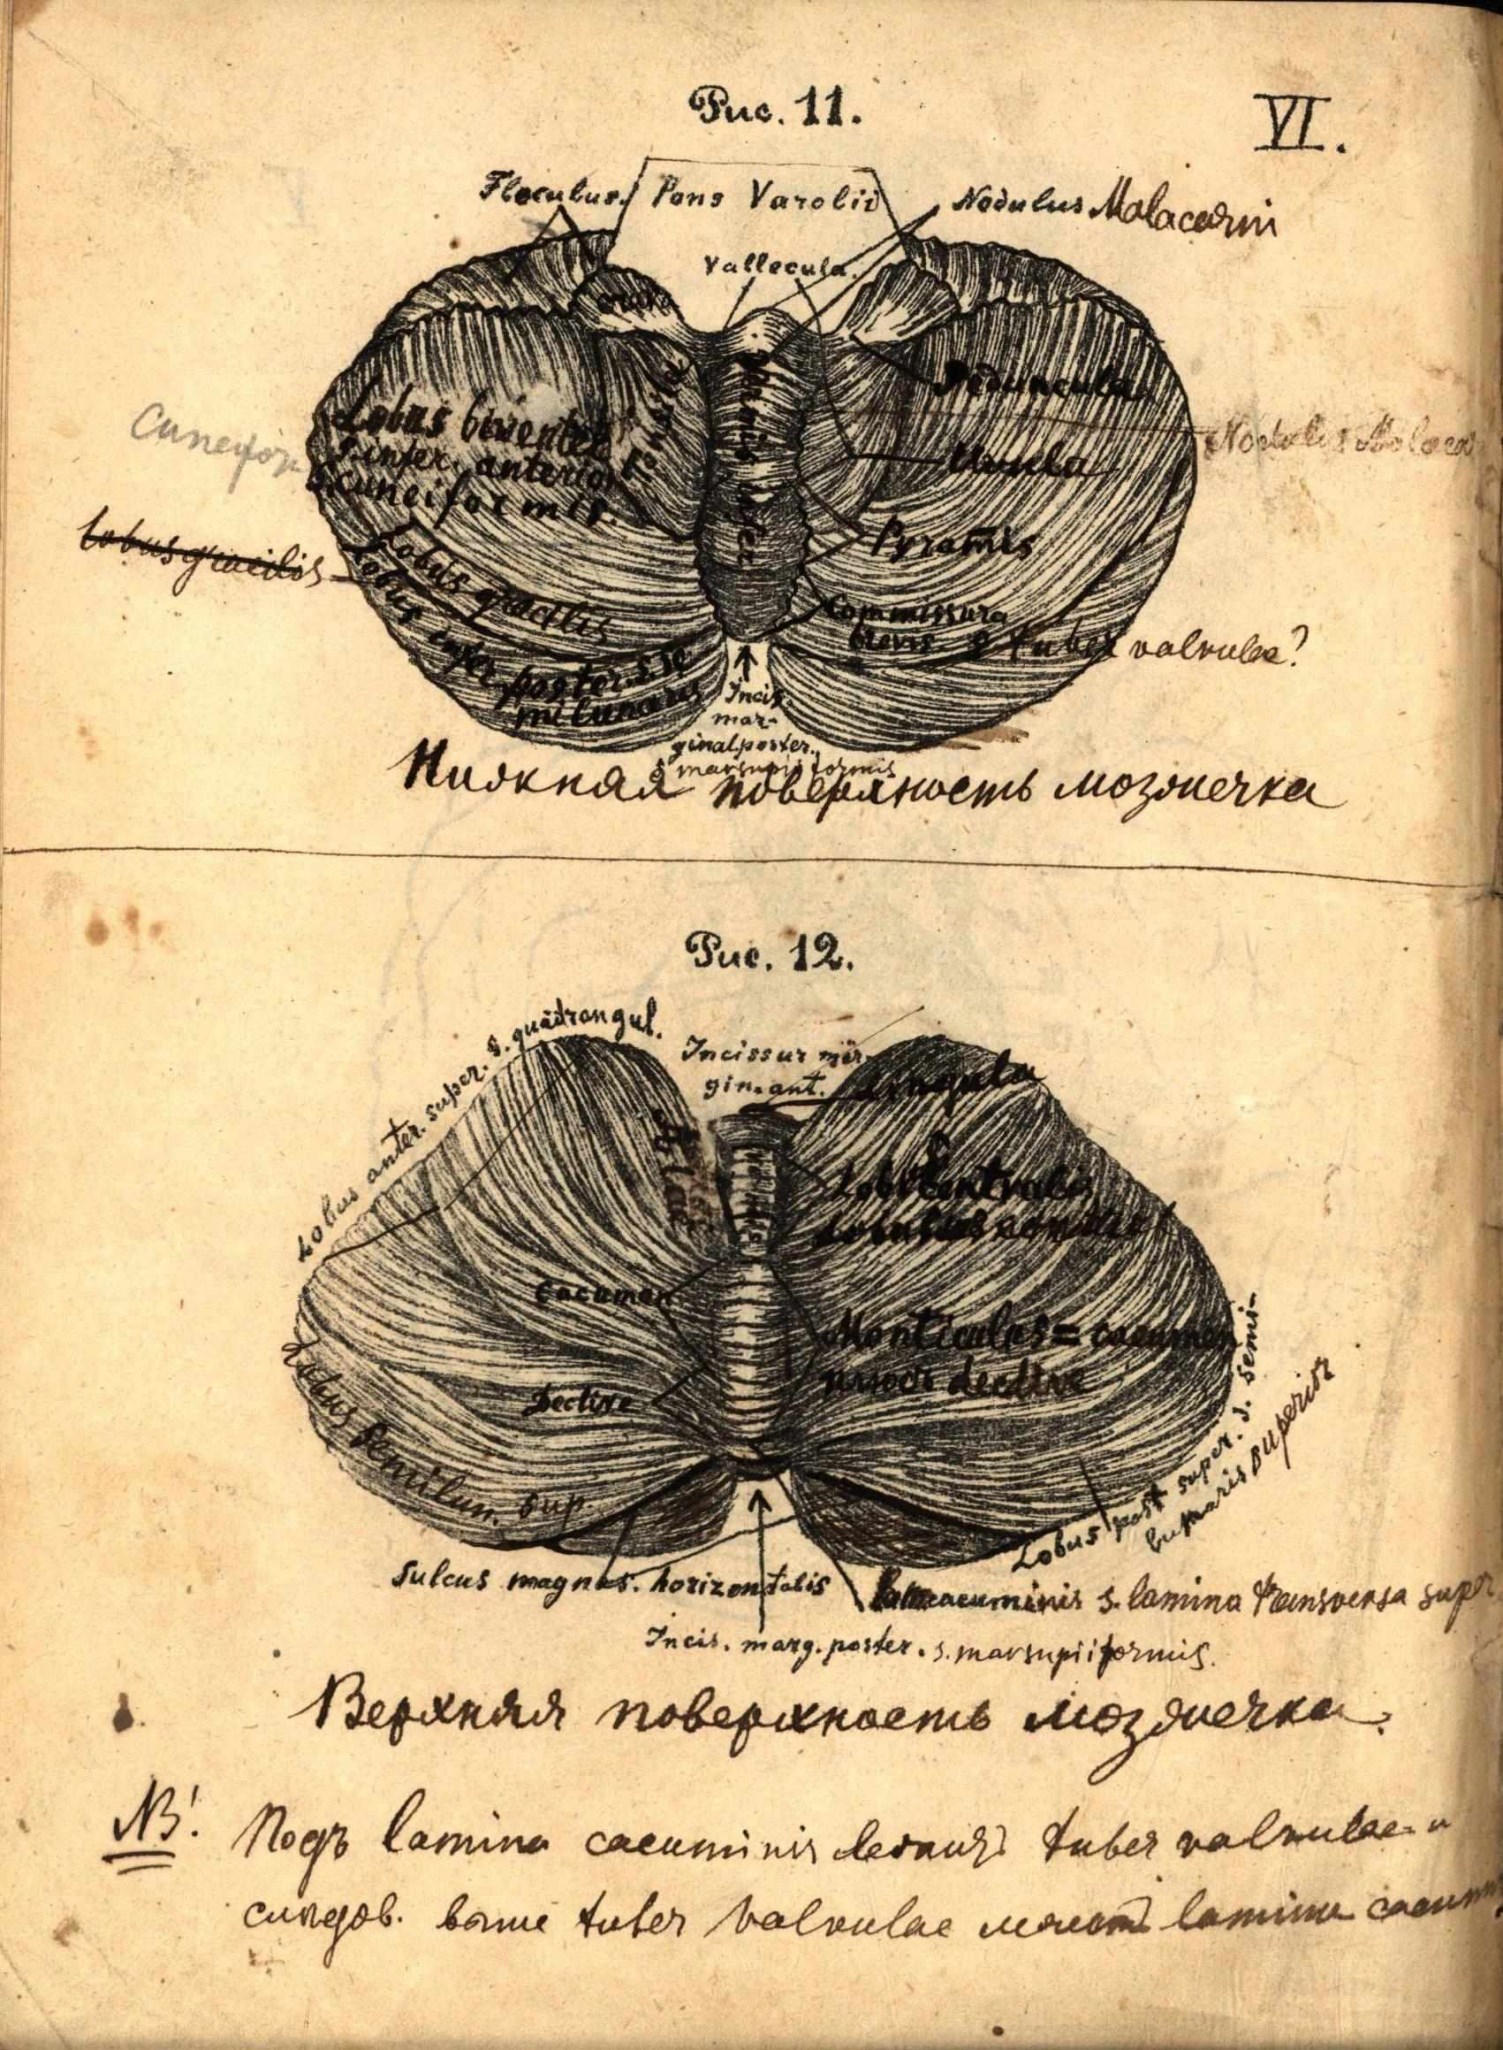 Рис. 11.
VI.
Floculus.
Pons Varolii
Nodulus Malacarni
Vallecula.
crura
Tonsilla
Vermis infer
Peduncula
Cuneifor
Lobus biventer
s. infer. anterior
s. cuneiformis.
Nodulus Malacar
Uvula
Pyramis
lobus gracilis
Lobus gracilis
Lobus infer. poster. s. se
milunaris
Commissura
brevis s tuber valvulae?
Incis.
mar-
ginal poster.
s marsupiiformis
Нижняя поверхность мозжечка
Рис. 12.
Lobus anter. super. s. quadrangul.
Incissur mar-
gin. ant.
Lingula
Alae
Lob. Centralis
Cacuman
Monticulus = cacumen
Declive
declive
Lobus Semilun. Sup.
Lobus post super. s. semi-
lunaris superior
Sulcus magnus. horizontalis
cacuminis s. lamina transversa super
Incis. marg. poster. s. marsupiiformis.
Верхняя поверхность мозжечка.
NB! Подъ lamina cacuminis лежитъ tuber valvulae и
следов. выше tuber valvulae лежитъ lamina cacumin